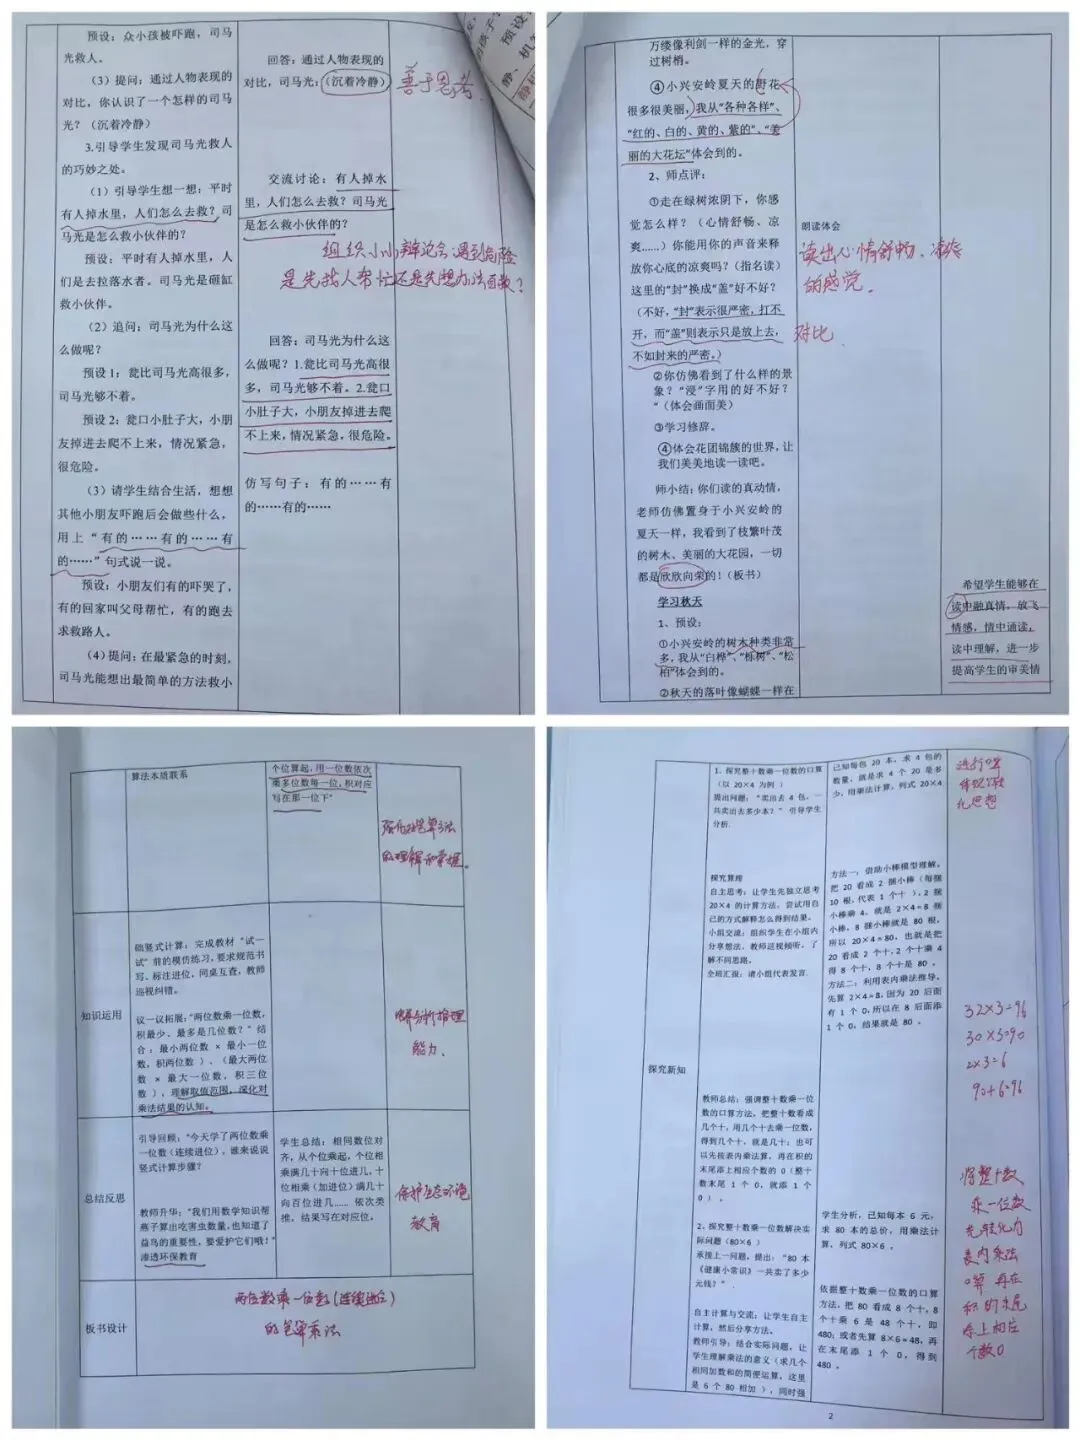 预设：众小孩被吓跑，司马
光救人。
（3）提问：通过人物表现的
对比，你认识了一个怎样的司马
光？（沉着冷静）
3.引导学生发现司马光救人
的巧妙之处。
（1）引导学生想一想：平时
有人掉水里，人们怎么去救？司
马光是怎么救小伙伴的？
预设：平时有人掉水里，人
们是去拉落水者。司马光是砸缸
救小伙伴。
（2）追问：司马光为什么这
么做呢？
预设1：瓮比司马光高很多，
司马光够不着。
预设2：瓮口小肚子大，小朋
友掉进去爬不上来，情况紧急，
很危险。
（3）请学生结合生活，想想
其他小朋友吓跑后会做些什么，
用上“有的……有的……有
的……”句式说一说。
预设：小朋友们有的吓哭了，
有的回家叫父母帮忙，有的跑去
求救路人。
（4）提问：在最紧急的时刻，
司马光能想出最简单的方法救小
回答：通过人物表现的
对比，司马光：（沉着冷静）
善于思考
交流讨论：有人掉水
里，人们怎么去救？司马光
是怎么救小伙伴的？
组织小小辩论会：遇到危险
是先找人帮忙还是先想办法自救？
回答：司马光为什么这
么做呢？1.瓮比司马光高很
多，司马光够不着。2.瓮口
小肚子大，小朋友掉进去爬
不上来，情况紧急，很危险。
仿写句子：有的……有
的……有的……
万缕像利剑一样的金光，穿
过树梢。
④小兴安岭夏天的野花
很多很美丽，我从“各种各样”、
“红的、白的、黄的、紫的”、“美
丽的大花坛”体会到的。
2、师点评：
①走在绿树浓阴下，你感
觉怎么样？（心情舒畅、凉
爽……）你能用你的声音来释
放你心底的凉爽吗？（指名读）
这里的“封”换成“盖”好不好？
（不好，“封”表示很严密，打不
开，而“盖”则表示只是放上去，
不如封来的严密。）
②你仿佛看到了什么样的景
象？“浸”字用的好不好？
“（体会画面美）
③学习修辞。
④体会花团锦簇的世界，让
我们美美地读一读吧。
师小结：你们读的真动情，
老师仿佛置身于小兴安岭的
夏天一样，我看到了枝繁叶茂
的树木、美丽的大花园，一切
都是欣欣向荣的！（板书）
学习秋天
1、预设：
①小兴安岭的树木种类非常
多，我从“白桦”、“栎树”、“松
柏”体会到的。
②秋天的落叶像蝴蝶一样在
朗读体会
读出心情舒畅、凉爽
的感觉。
对比
希望学生能够在
读中融真情，放飞
情感，情中诵读，
读中理解，进一步
提高学生的审美情
算法本质联系
个位算起，用一位数依次
乘多位数每一位，积对应
写在那一位下”
强化对笔算方法
的理解和掌握。
知识运用
础竖式计算：完成教材“试一
试”前的模仿练习，要求规范书
写、标注进位，同桌互查，教师
巡视纠错。
议一议拓展：“两位数乘一位数，
积最少、最多是几位数？”结
合：最小两位数 × 最小一位
数，积两位数）、（最大两位
数 × 最大一位数，积三位
数），理解取值范围，深化对
乘法结果的认知。
培养分析推理
能力、
总结反思
引导回顾：“今天学了两位数乘
一位数（连续进位），谁来说说
竖式计算步骤？
教师升华：“我们用数学知识帮
燕子算出吃害虫数量，也知道了
益鸟的重要性，要爱护它们哦！”
渗透环保教育
学生总结：相同数位对
齐，从个位乘起，个位相
乘满几十向十位进几，十
位相乘（加进位）满几十
向百位进几…… 依次类
推，结果写在对应位。
保护生态环境
教育
板书设计
两位数乘一位数（连续进位）
的笔算乘法
探究新知
1、探究整十数乘一位数的口算
（以 20×4 为例 ）
提出问题：“卖出去 4 包，一
共卖出去多少本？” 引导学生
分析.
探究算理
自主思考：让学生先独立思考
20×4 的计算方法，尝试用自
己的方式解释怎么得到结果。
小组交流：组织学生在小组内
分享想法，教师巡视倾听，了
解不同思路。
全班汇报：请小组代表发言.
教师总结：强调整十数乘一位
数的口算方法，把整十数看成
几个十，用几个十去乘一位数，
得到几个十，就是几十；也可
以先按表内乘法算，再在积的
末尾添上相应个数的 0（整十
数末尾 1 个 0，就添 1 个
0 ）。
2、探究整十数乘一位数解决实
际问题（80×6 ）
承接上一问题，提出：“80 本
《健康小常识》一共卖了多少
元钱？”
自主计算与交流：让学生自主
计算，然后分享方法。
教师引导：结合实际问题，让
学生理解乘法的意义（求几个
相同加数和的简便运算，这里
是 6 个 80 相加 ），同时强
已知每包 20 本，求 4 包的
数量，就是求 4 个 20 是多
少，用乘法计算，列式 20×4
方法一：借助小棒模型理解，
把 20 看成 2 捆小棒（每捆
10 根，代表 1 个十 ），2 捆
小棒乘 4，就是 2×4=8 捆
小棒，8 捆小棒就是 80 根，
所以 20×4=80，也就是把
20 看成 2 个十，2 个十乘 4
得 8 个十，8 个十是 80 。
方法二：利用表内乘法推导，
先算 2×4=8，因为 20 后面
有 1 个 0，所以在 8 后面添
1 个 0，结果就是 80 。
学生分析，已知每本 6 元，
求 80 本的总价，用乘法计
算，列式 80×6 。
依据整十数乘一位数的口算
方法，把 80 看成 8 个十，8
个十乘 6 是 48 个十，即
480；或者先算 8×6=48，再
在末尾添 1 个 0，得到
480 。
进行口算
体现
化思想
32×3=96
30×3=90
2×3=6
90+6=96
将整十数
乘一位数
先转化为
表内乘法
口算 再在
积的末尾
添上相应
个数0
2